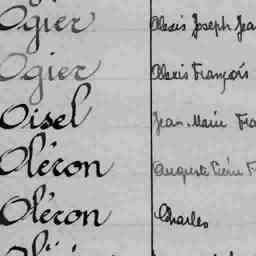 Ogier Alexis Joseph Jea
Ogier Alexis François
Oisel Jean-Marie Fra
Oléron Auguste Pierre F
Oléron Charles